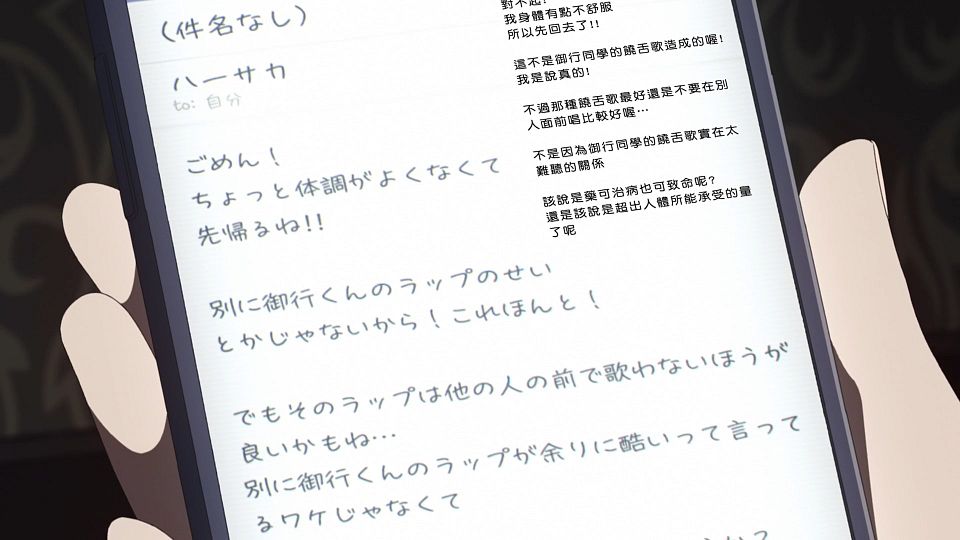 (件名なし)
ハーサカ
to: 自分
ごめん!
ちょっと体調がよくなくて
先帰るね!!
別に御行くんのラップのせい
とかじゃないから!これほんと!
でもそのラップは他の人の前で歌わないほうが
良いかもね…
別に御行くんのラップが余りに酷いって言って
るワケじゃなくて
對不起!
我身體有點不舒服
所以先回去了!!
這不是御行同學的饒舌歌造成的喔!
我是說真的!
不過那種饒舌歌最好還是不要在別
人面前唱比較好喔…
不是因為御行同學的饒舌歌實在太
難聽的關係
該說是藥可治病也可致命呢?
還是該說是超出人體所能承受的量
了呢